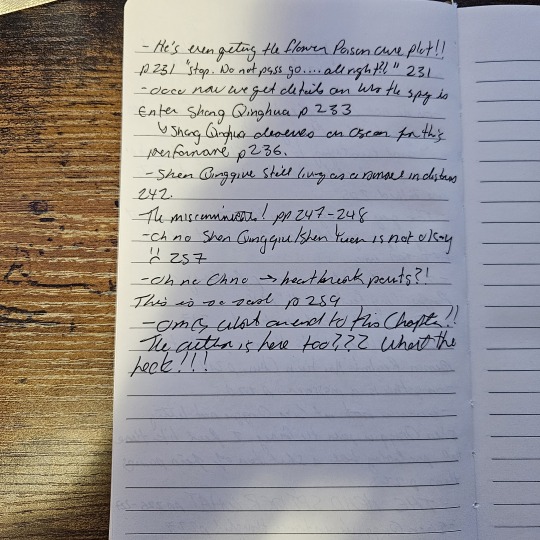 - He's even getting the flower Poison cure plot!!
p231 "Stop. Do not pass go.... all right?!" 231
- oooo now we get details on who the spy is
Enter Shang Qinghua p 233
↳ Shang Qinghua deserves an Oscar for this
performance p236.
- Shen Qingqiu still living as a damsel in distress
242.
The miscommunication! pp 247-248
- oh no Shen Qingqiu/Shen Yuan is not okay
!! 257
- oh no Ohno → heartbreak points?!
This is so sad p 259
- OMG what an end to this Chapter!!
The author is here too??? What the
heck!!!